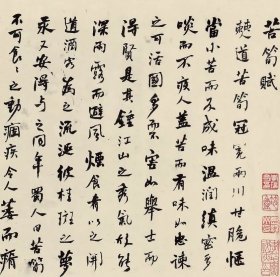 苦筍賦
僰道苦筍冠冕兩川甘脆愜
當小苦而反成味溫潤縝密多
啖而不疾人蓋苦而有味如忠諫
之可活國多而不害如舉士而
得賢是其鍾江山之秀氣故能
深雨露而避風煙食肴以之開
道酒客為之流涎彼桂斑之夢
汞又安得與之同年蜀人曰苦筍
不可食〻之動痼疾令人萎而瘠